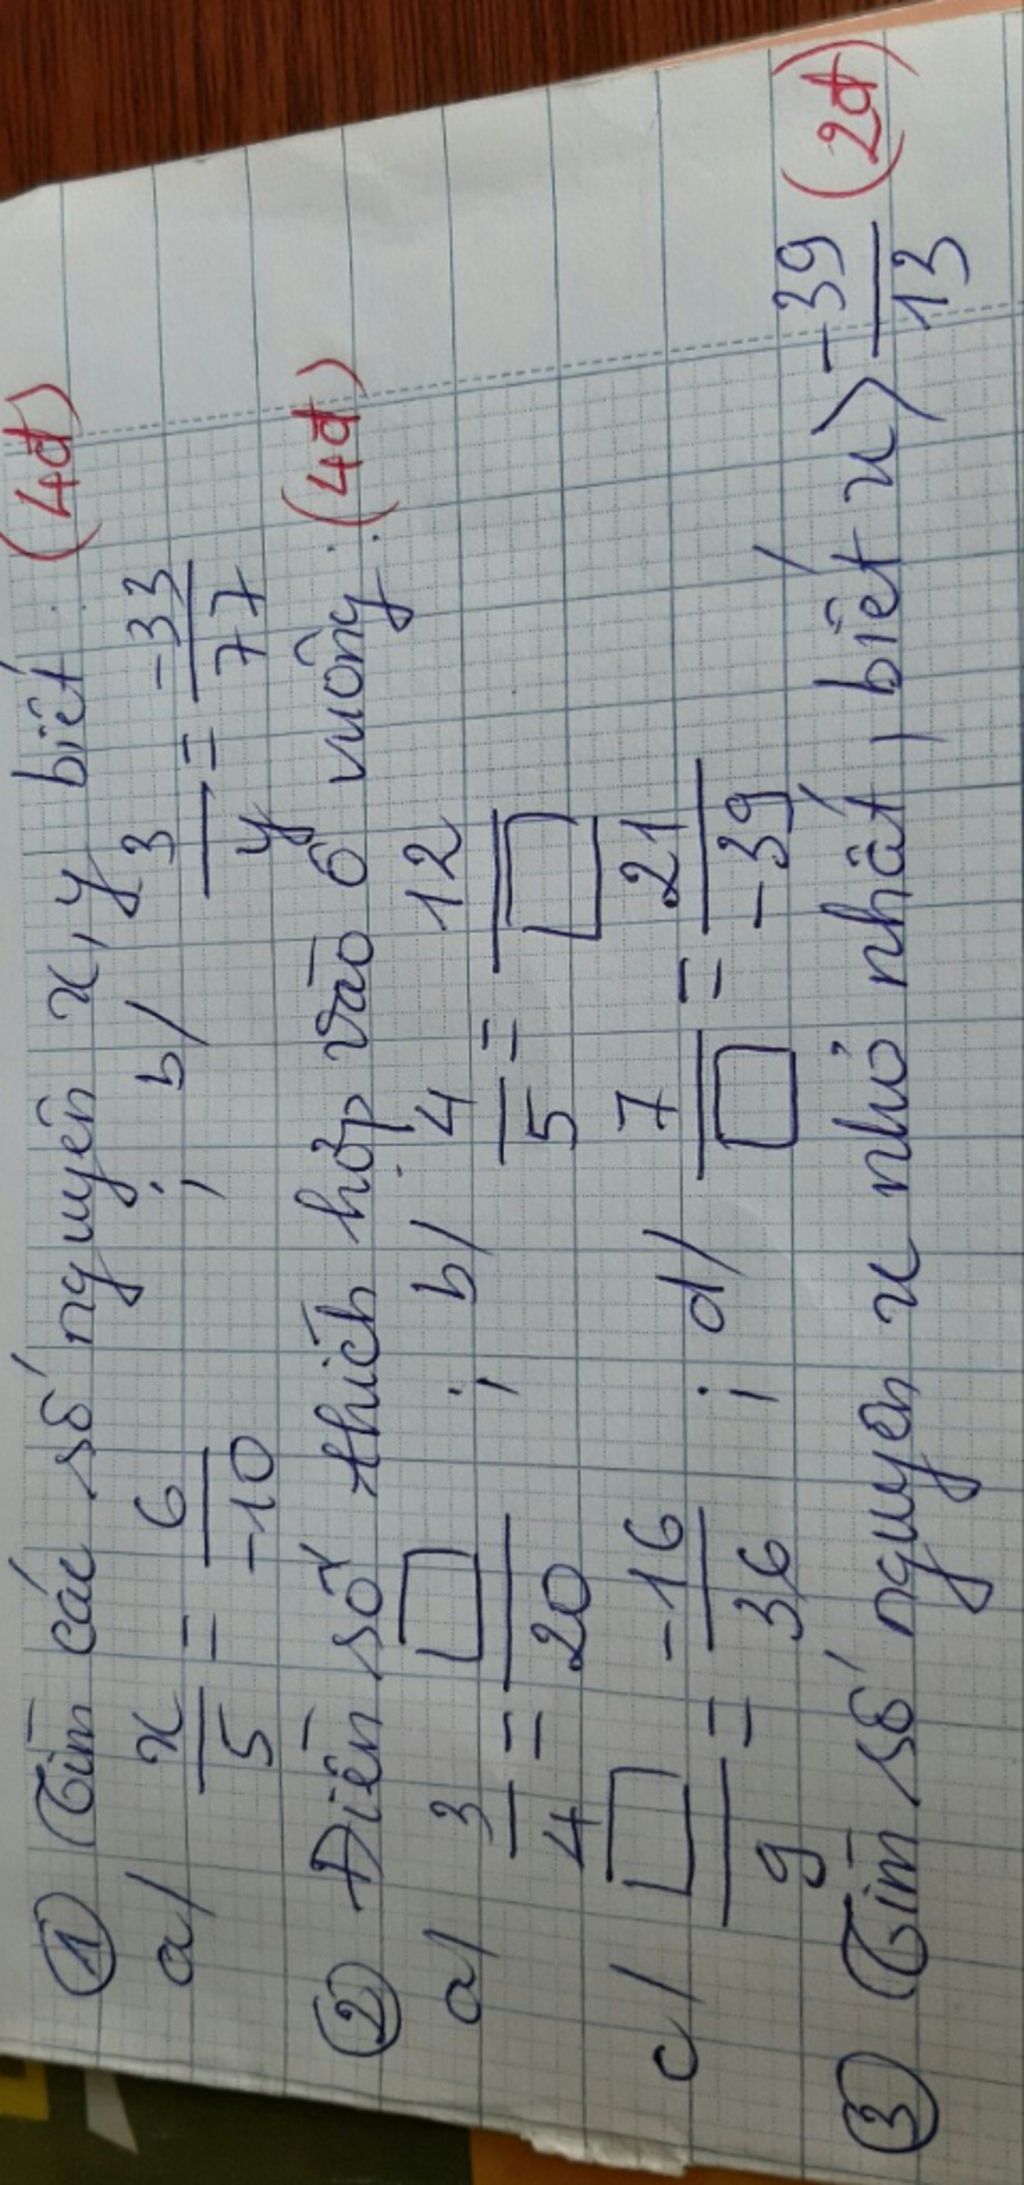 ① Tìm các số nguyên x, y biết: (4đ)
a/ x/5 = 6/-10 ; b/ 3/y = -33/77
② Điền số thích hợp vào ô vuông: (4đ)
a/ 3/4 = □/20 ; b/ 4/5 = 12/□
c/ □/9 = -16/36 ; d/ 7/□ = 21/-39
③ Tìm số nguyên x nhỏ nhất, biết x > -39/13 (2đ)